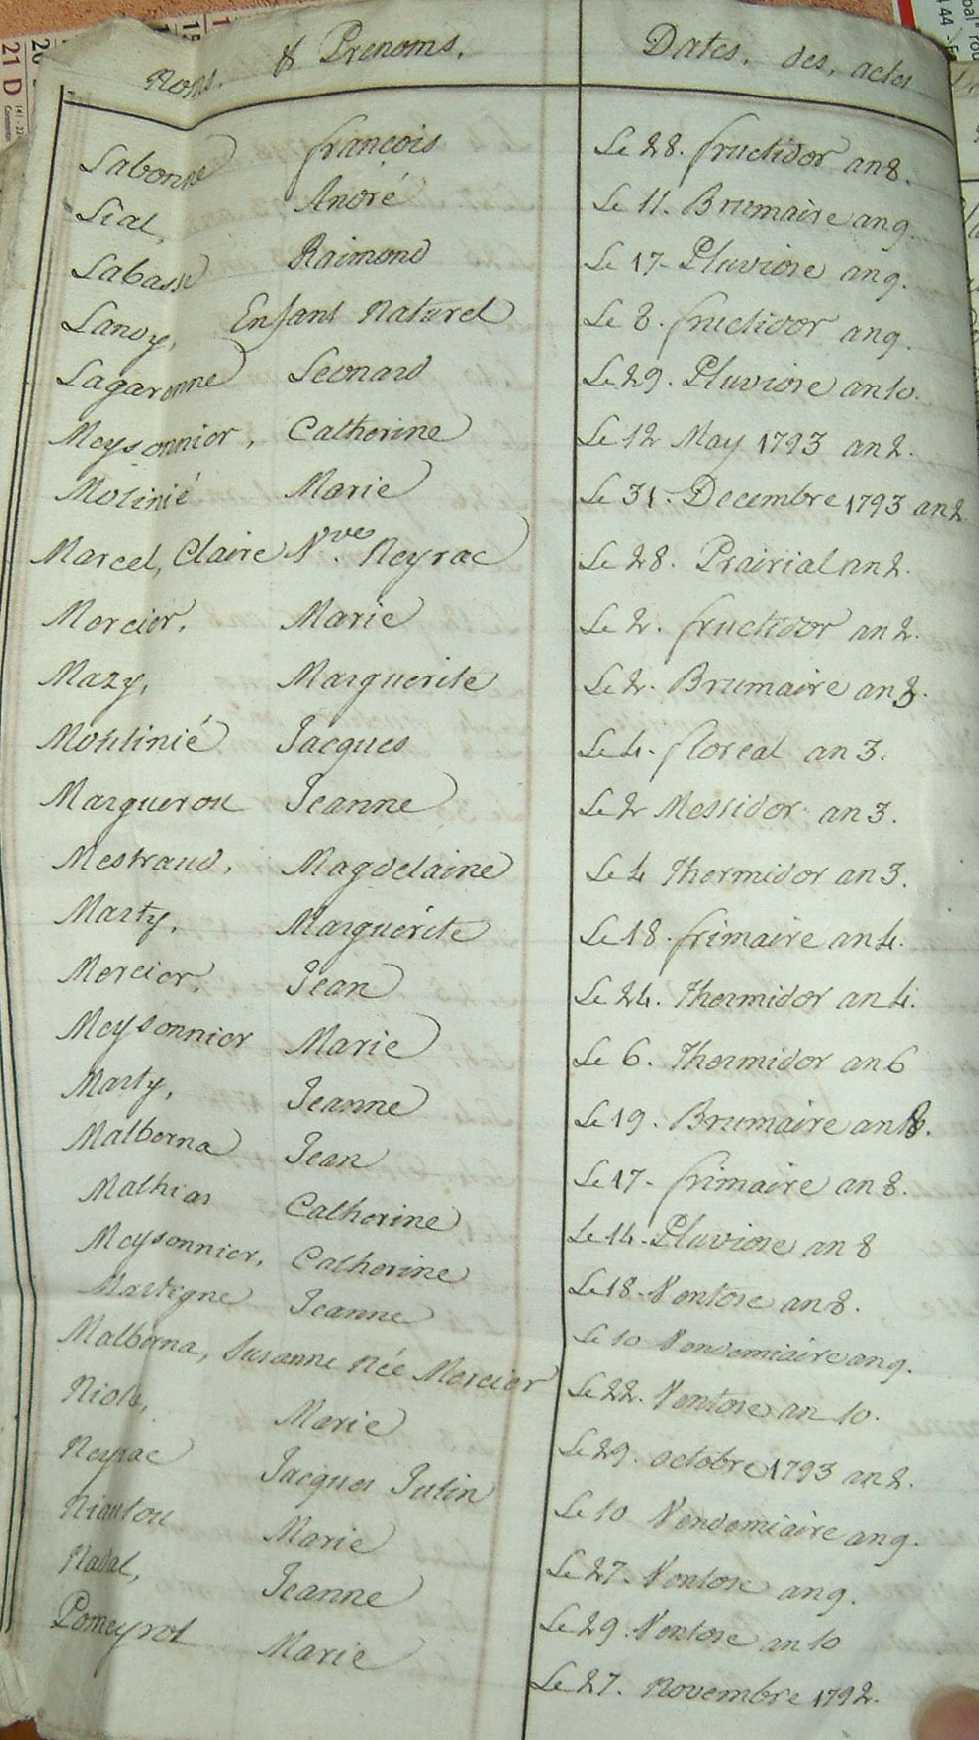 Noms. & Prenoms. Dates. des. actes
Labonne François Le 28. fructidor an 8.
Lial, André Le 11. Brumaire an 9.
Labasse Raimond Le 17. Pluviose an 9.
Lanoy, Enfant Naturel Le 8. fructidor an 9.
Lagaronne Leonard Le 29. Pluviose an 10.
Meysonnier, Catherine Le 12 May 1793 an 2.
Molinié Marie Le 31. Decembre 1793 an 2
Marcel, Claire Vve. Neyrac Le 28. Prairial an 2.
Mercier, Marie Le 2. fructidor an 2.
Mazy, Marguerite Le 2. Brumaire an 3.
Moulinié Jacques Le 4. floreal an 3.
Marguerou Jeanne Le 2 Messidor an 3.
Mestraud, Magdelaine Le 4 Thermidor an 3.
Marty, Marguérite Le 18. frimaire an 4.
Mercier, Jean Le 24. Thermidor an 4.
Meysonnier Marie Le 6. Thermidor an 6
Marty, Jeanne Le 19. Brumaire an 8.
Malberna Jean Le 17. frimaire an 8.
Mathias Catherine Le 14. Pluviose an 8
Meysonnier, Catherine Le 18. Ventose an 8.
Martegne Jeanne Le 10 Vendemiaire an 9.
Malberna, Susanne Née Mercier Le 22. Ventose an 10.
Niole, Marie Le 29. octobre 1793 an 2.
Neyrac Jacques Julin Le 10 Vendemiaire an 9.
Niautou Marie Le 27. Ventose an 9.
Nadal, Jeanne Le 29. Ventose an 10
Pomeyrol Marie Le 27. Novembre 1792.
21 D